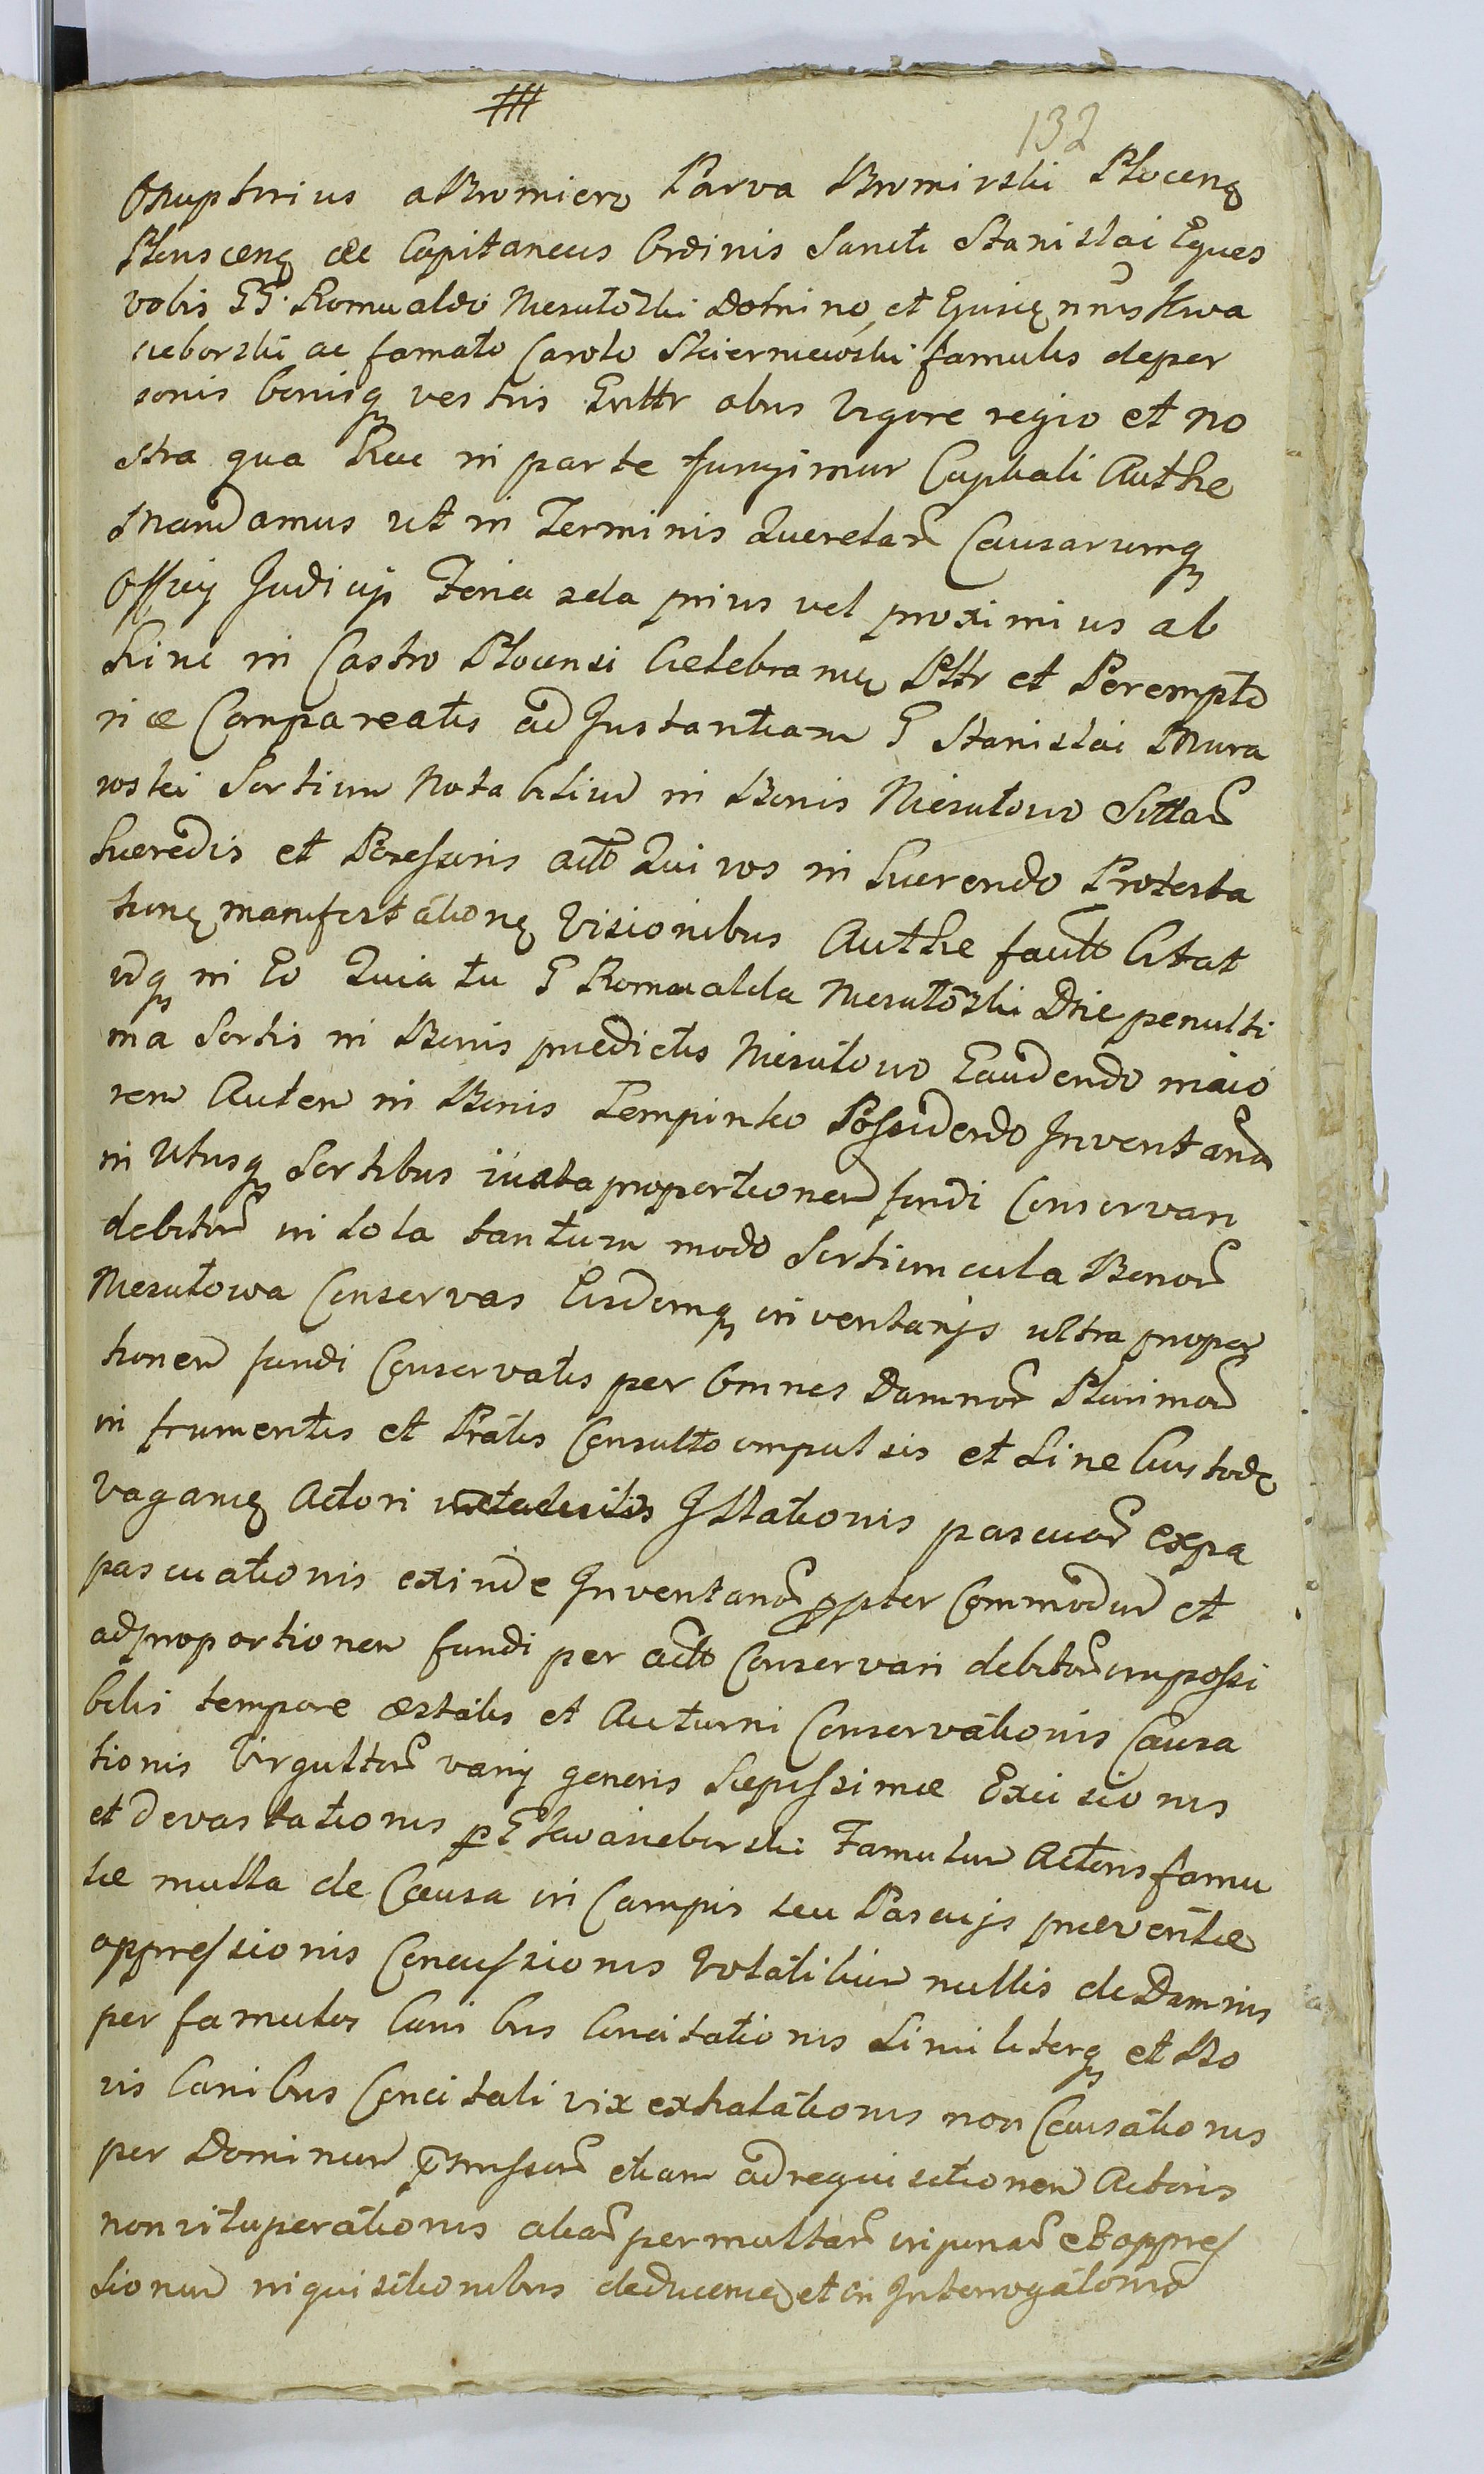 #
132
Onuphrius a Bromierz Parva Bromirski Plocenę
Plonscenę &c Capitaneus Ordinis Sancti Stanislai Eques
vobis GG. Romualdo Niesułowski Domino, et Ejusdę Kwa
sieborski ac famato Carolo Skierniewski famulis de per
sonis bonisqꝫ vestris Grlttr obus Vigore regio et no
stra qua hac in parte fungimur Capitali Autthe
Mandamus ut in Terminis Querelar̃ Causarumqꝫ
Officij Judicij Feria 2da prius vel proximius ab
hinc in Castro Plocensi Celebranę Plttr et Perempto
rie Compareatis ad Instantiam G Stanislai Mura
wski Sortium Notabilium in Bonis Niesułowo Sittar̃
hæredis et Possessoris actto Qui vos in hærendo Protesta
tionę manifestationę Visionibus Autthe factto Citat
idqꝫ in Eo Quia tu G Romualde Niesułowski Die penulti
ma Sortis in Bonis prædictis Niesułowo Gaudendo maio
rem Autem in Bonis Lempinko Possidendo Inventaria
in Utrisqꝫ Sortibus iuxta proportionem fundi Conservari
debitor̃ in sola tantum modo Sortiuncula Bonor̃
Niesułowa Conservas Eisdemqꝫ inventarijs ultra propor
tionem fundi Conservatis per Omnes Damnor̃ Plurimor̃
in frumentis et Pratis Consulto impulsis et Sine Custodę
vaganę Actori Illationis pascuor̃ expa
pascuationis exinde Inventarior̃ ppter Commodum et
ad proportionem fundi per actto Conservari debitor̃ impossi
bilis tempore æstatis et Autumni Conservationis Causa
tionis Virgultor̃ varij generis Sæpissimæ Excisionis
et Devastationis p G Kwasieborski Famulum Actoris famu
læ nulla de Causa in Campis seu Pascuis præventæ
oppressionis Concussionis Volatilium nullis de Damnis
per famulos Canibus Concitationis Similiterqꝫ et Bo
vis Canibus Concitati vix exhalationis non Causationis
per Dominum præmissor̃ etiam ad requisitionem Actoris
non vituperationis aliar̃ permultar̃ injuriar̃ et oppres
sionum inquisitionibus deducenę et in Interrogatorio